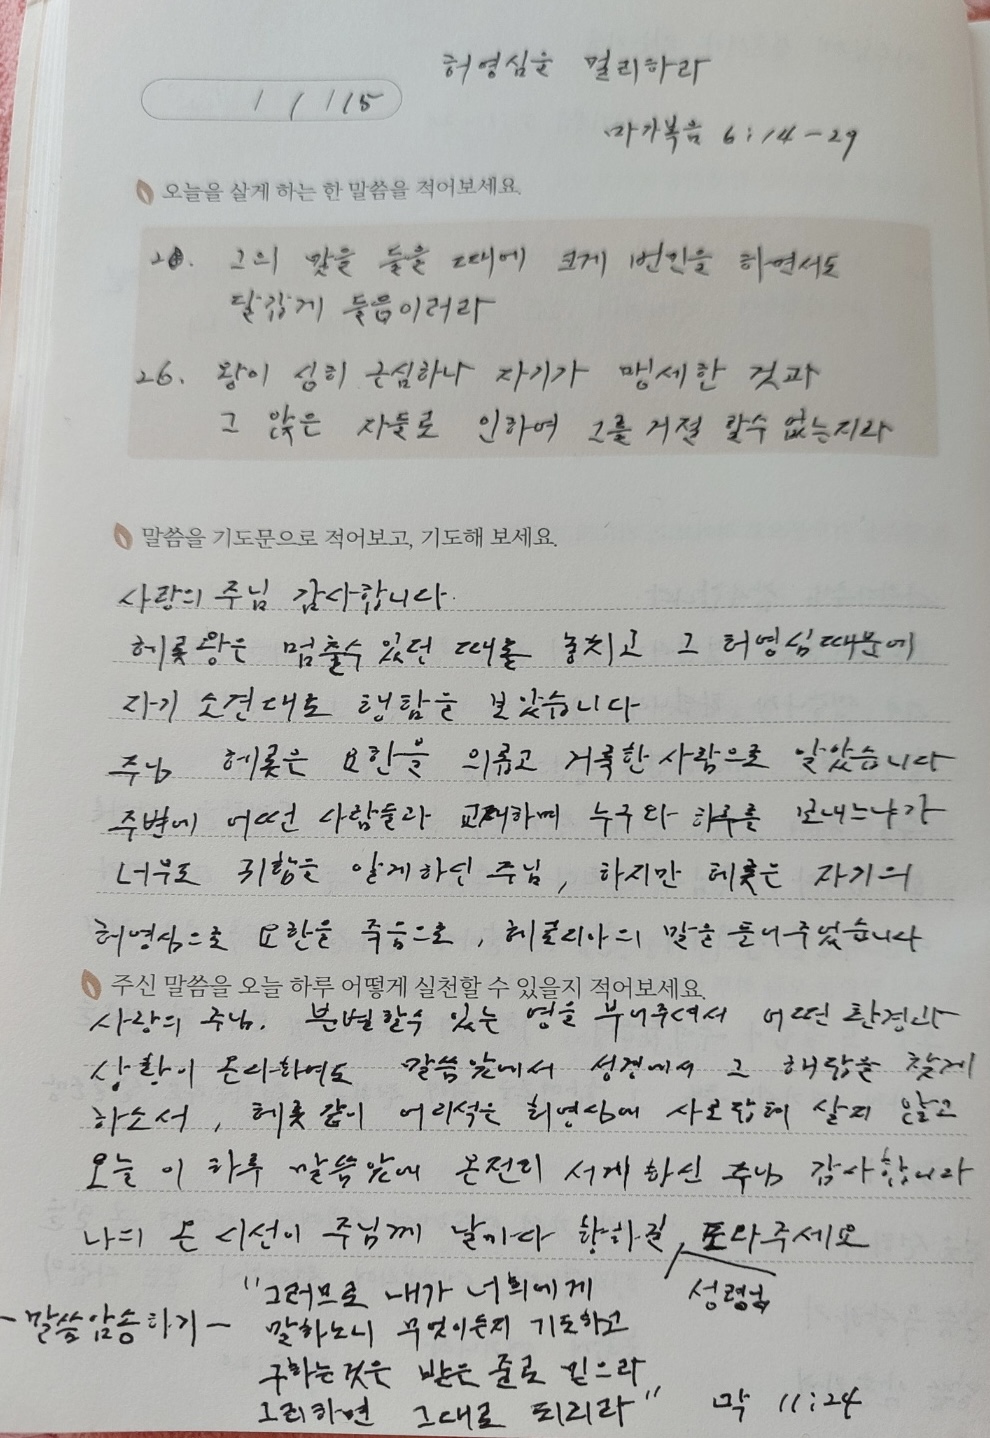 허영심을 멀리하라
1 / 1/15
마가복음 6:14-29
오늘을 살게 하는 한 말씀을 적어보세요.
20. 그의 말을 들을 때에 크게 번민을 하면서도
달갑게 들음이러라
26. 왕이 심히 근심하나 자기가 맹세한 것과
그 앉은 자들로 인하여 그를 거절 할수 없는지라
말씀을 기도문으로 적어보고, 기도해 보세요.
사랑의 주님 감사합니다.
헤롯왕은 멈출수 있던 때를 놓치고 그 허영심때문에
자기 소견대로 행함을 보았습니다
주님 헤롯은 요한을 의롭고 거룩한 사람으로 알았습니다
주변에 어떤 사람들과 교제하며 누구와 하루를 보내느냐가
너무도 귀함을 알게하신 주님, 하지만 헤롯은 자기의
허영심으로 요한을 죽음으로, 헤로디아의 말을 들어주었습니다
주신 말씀을 오늘 하루 어떻게 실천할 수 있을지 적어보세요.
사랑의 주님. 분별할수 있는 영을 부어주셔서 어떤 환경과
상황이 온다하여도 말씀앞에서 성경에서 그 해답을 찾게
하소서, 헤롯같이 어리석은 허영심에 사로잡혀 살지 않고
오늘 이 하루 말씀앞에 온전히 서게 하신 주님 감사합니다
나의 온 시선이 주님께 날마다 향하길, 도와주세요
성령님
-말씀암송하기-
"그러므로 내가 너희에게
말하노니 무엇이든지 기도하고
구하는것은 받은 줄로 믿으라
그리하면 그대로 되리라" 막 11:24